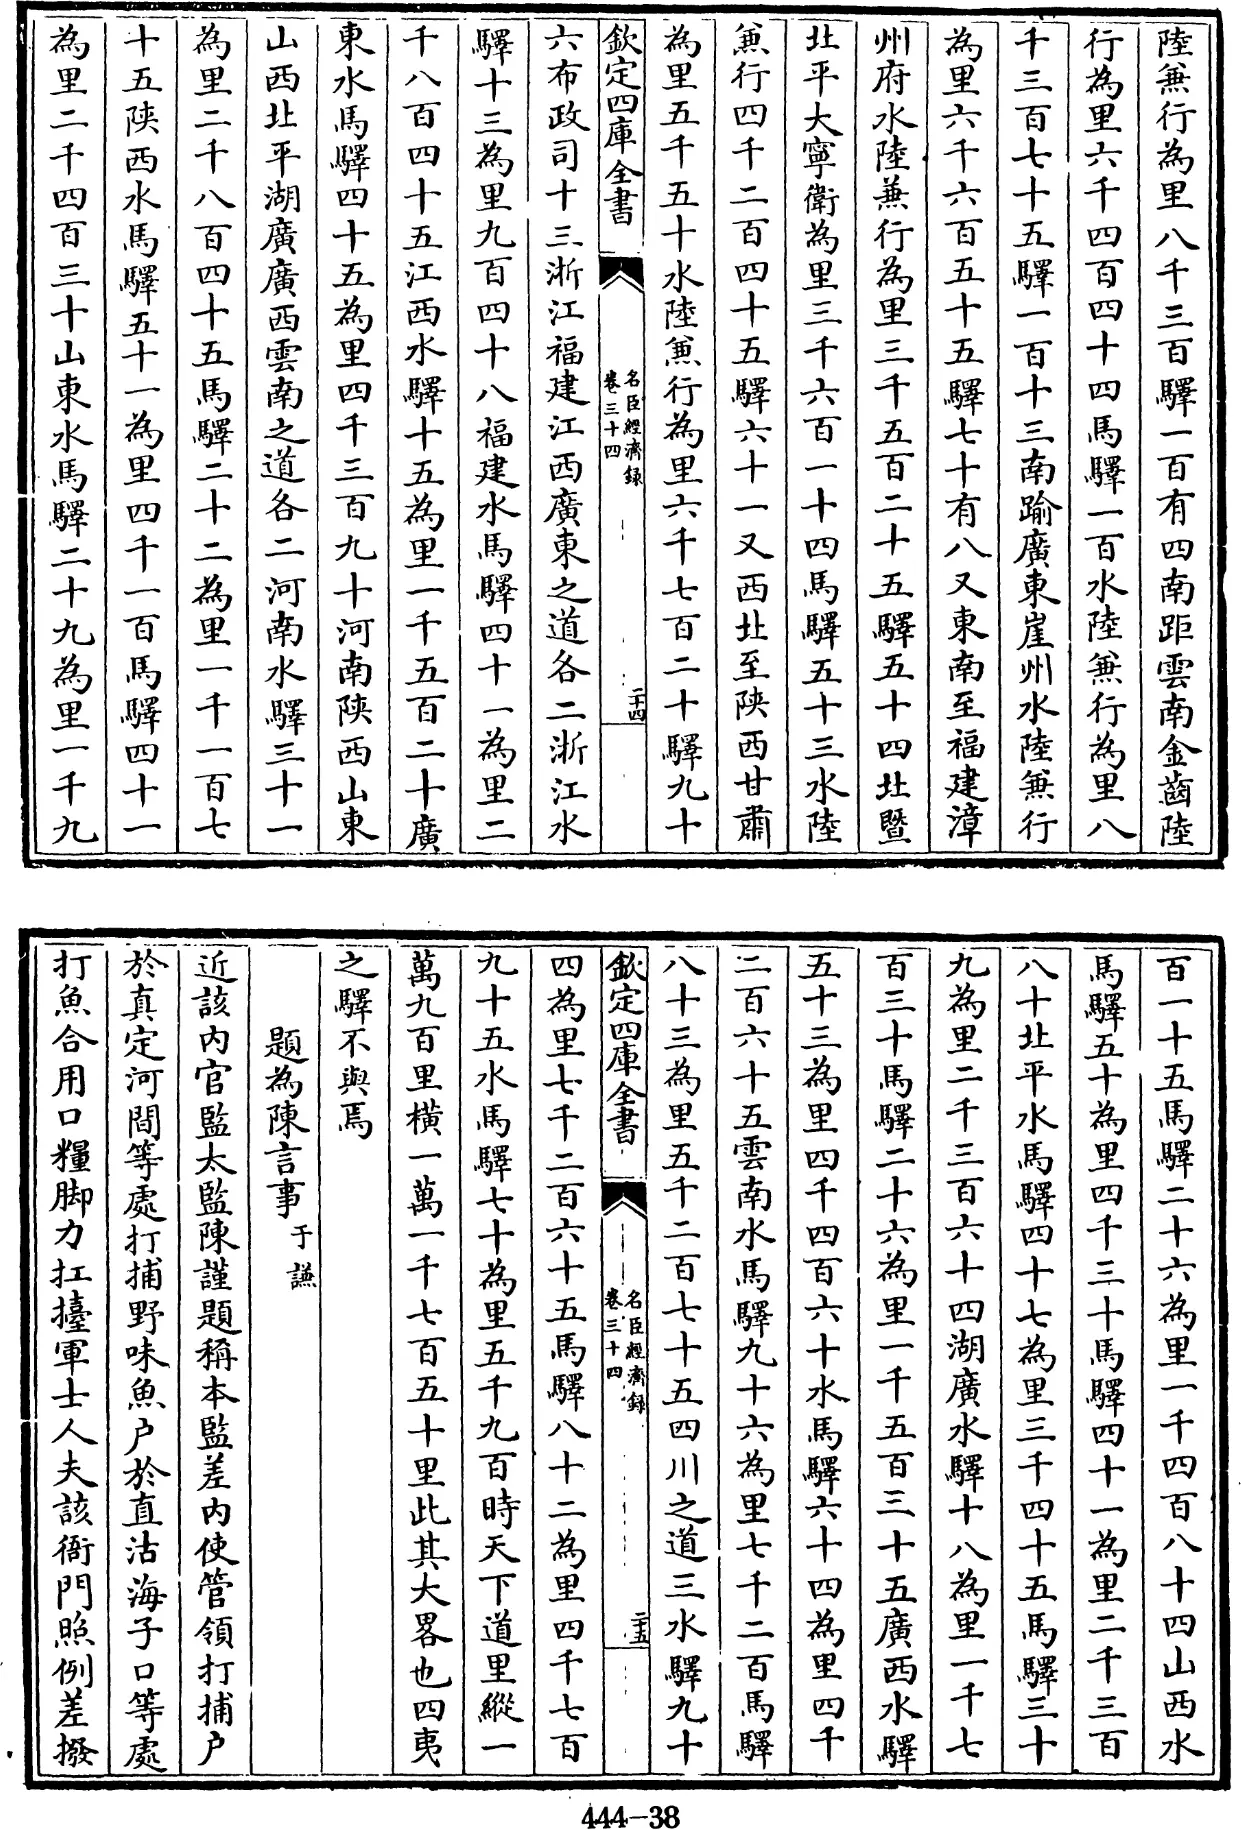 陸兼行為里八千三百驛一百有四南距雲南金齒陸
行為里六千四百四十四馬驛一百水陸兼行為里八
千三百七十五驛一百十三南踰廣東崖州水陸兼行
為里六千六百五十五驛七十有八又東南至福建漳
州府水陸兼行為里三千五百二十五驛五十四北暨
北平大寧衛為里三千六百一十四馬驛五十三水陸
兼行四千二百四十五驛六十一又西北至陝西甘肅
為里五千五十水陸兼行為里六千七百二十驛九十
欽定四庫全書
名臣經濟録
卷三十四
二十四
六布政司十三浙江福建江西廣東之道各二浙江水
驛十三為里九百四十八福建水馬驛四十一為里二
千八百四十五江西水驛十五為里一千五百二十廣
東水馬驛四十五為里四千三百九十河南陝西山東
山西北平湖廣廣西雲南之道各二河南水驛三十一
為里二千八百四十五馬驛二十二為里一千一百七
十五陝西水馬驛五十一為里四千一百馬驛四十一
為里二千四百三十山東水馬驛二十九為里一千九
百一十五馬驛二十六為里一千四百八十四山西水
馬驛五十為里四千三十馬驛四十一為里二千三百
八十北平水馬驛四十七為里三千四十五馬驛三十
九為里二千三百六十四湖廣水驛十八為里一千七
百三十馬驛二十六為里一千五百三十五廣西水驛
五十三為里四千四百六十水馬驛六十四為里四千
二百六十五雲南水馬驛九十六為里七千二百馬驛
八十三為里五千二百七十五四川之道三水驛九十
欽定四庫全書
名臣經濟録
卷三十四
二十五
四為里七千二百六十五馬驛八十二為里四千七百
九十五水馬驛七十為里五千九百時天下道里縱一
萬九百里橫一萬一千七百五十里此其大畧也四夷
之驛不與焉
題為陳言事 于謙
近該内官監太監陳謹題稱本監差内使管領打捕户
於真定河間等處打捕野味魚户於直沽海子口等處
打魚合用口糧脚力扛擡軍士人夫該衙門照例差撥
444-38